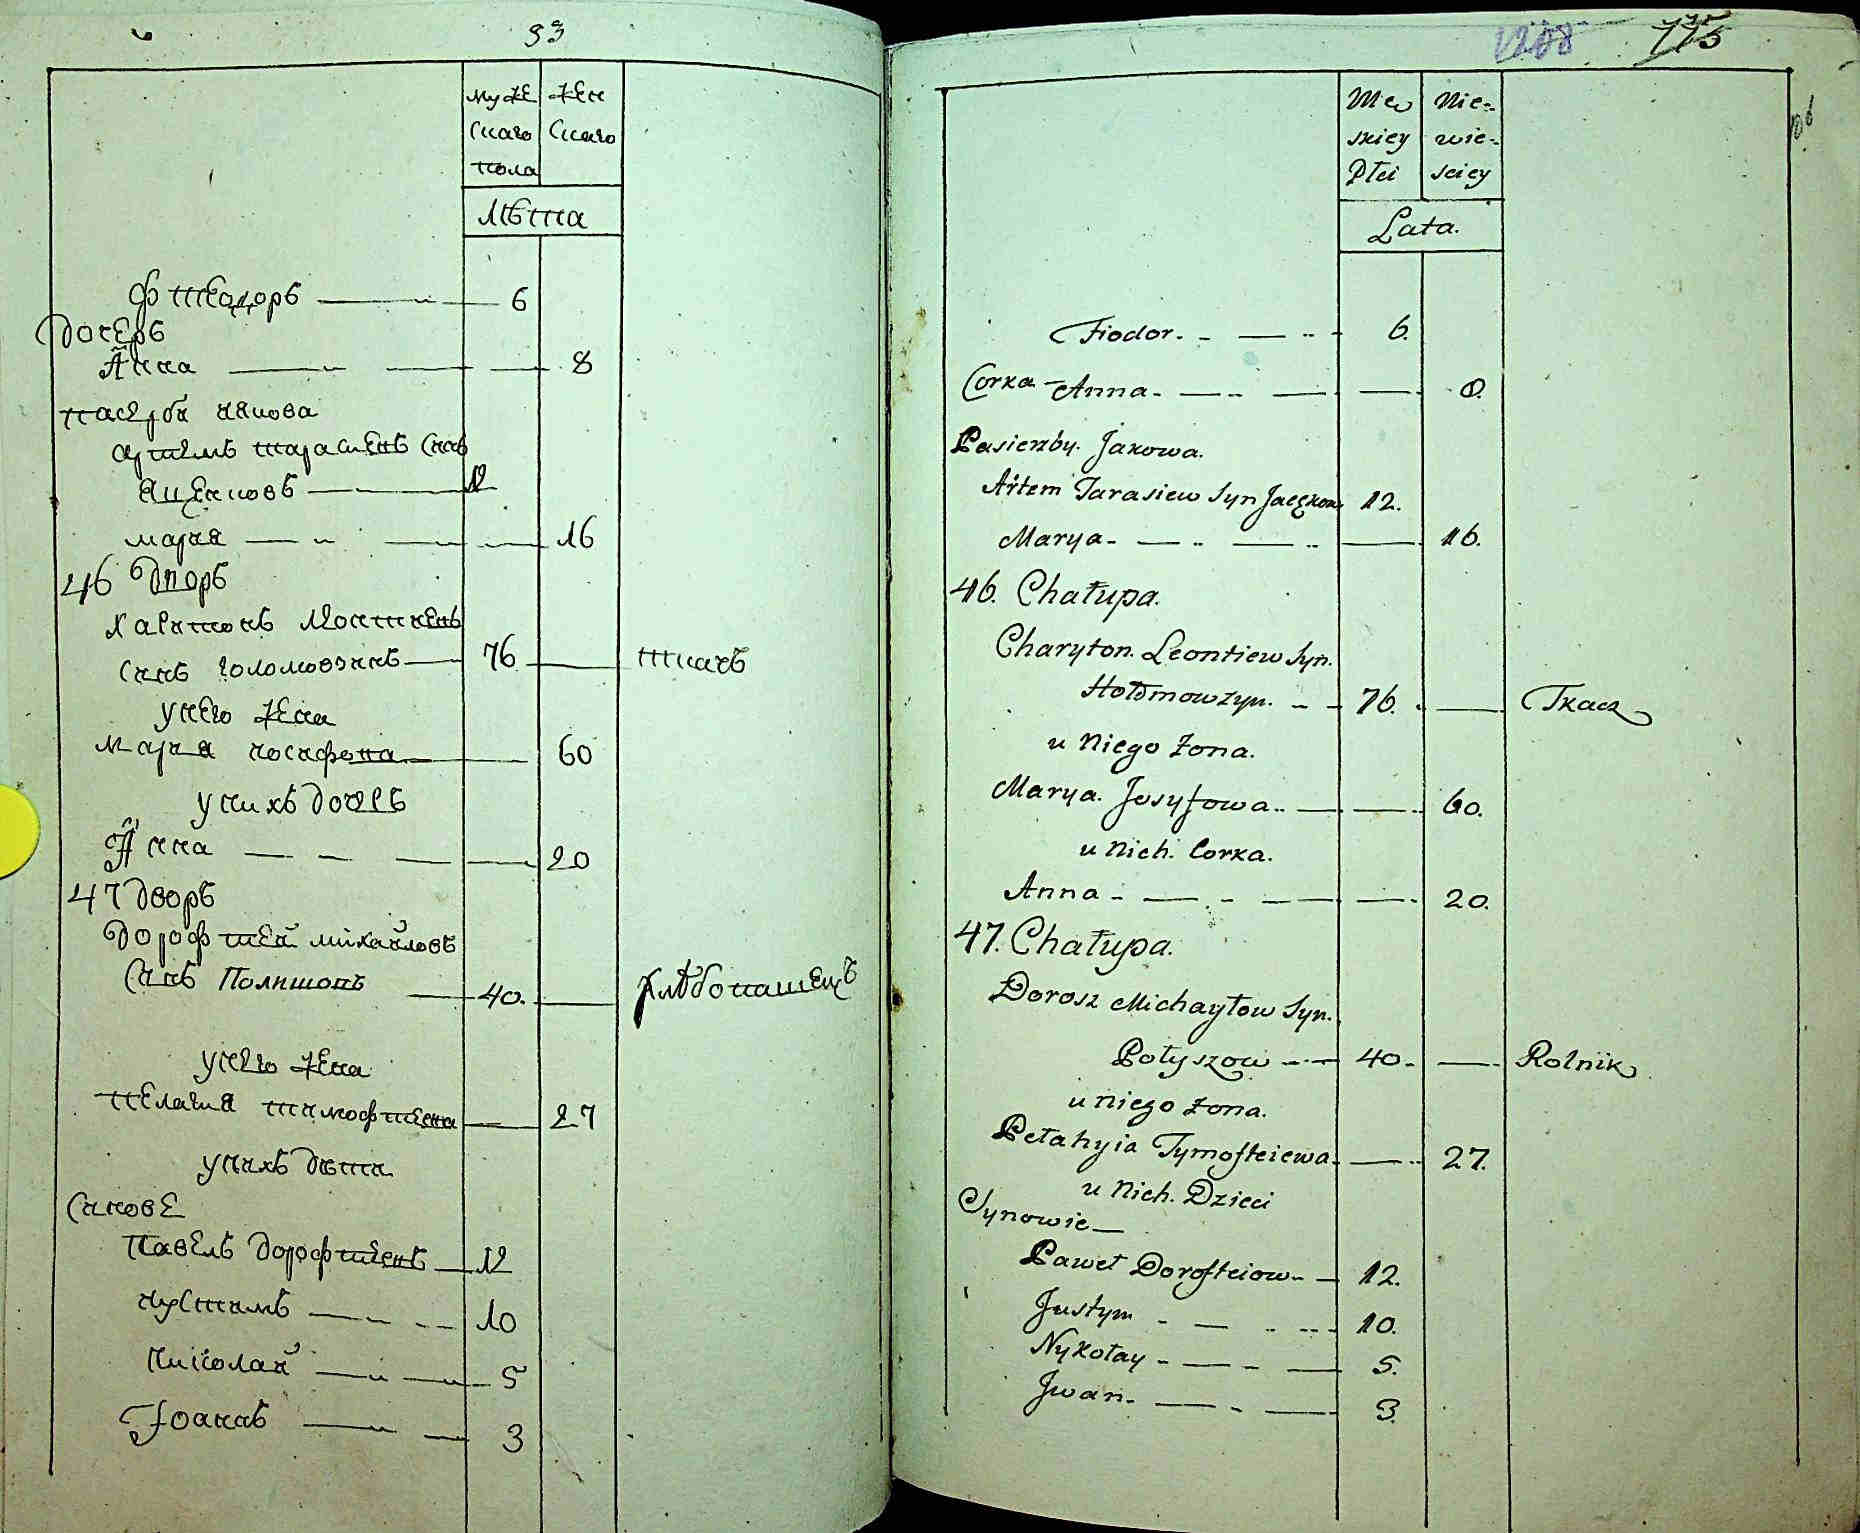 93
муже
скаго
пола
жен
скаго
лѣта
Фтеодоръ 6
дочерь
Анна 8
пасерби якова
артемъ тарасиевъ синъ
яценковъ 12
мария 16
46 дворъ
Харитонъ Леонтиевъ
синъ Голомовзинъ 76 ткачъ
у него жена
Мария иосифова 60
у нихъ дочерь
Анна 20
47 дворъ
дорофтей михайловъ
Синъ Полишовъ 40. хлѣбопашецъ
у него жена
пелагия тимофтиева 27
у нихъ дѣти
Синове
Павелъ дорофтиевъ 12
иустимъ 10
николай 5
Іоанъ 3
1208 775
Mę
skiey
Płci
Nie-
wie-
sciey
Lata.
Fiodor. 6.
Corka Anna 8.
Pasierzby Jakowa.
Artem Tarasiew Syn Jacenkow 12.
Marya 16.
46. Chałupa.
Charyton Leontiew Syn.
Hołomowzyn. 76. Tkacz
u Niego Żona.
Marya Jusyfowa 60.
u Nich Corka.
Anna 20.
47. Chałupa.
Dorosz Michayłow Syn.
Połyszow 40. Rolnik
u niego Żona.
Pełahyia Tymofteiewa 27.
u Nich. Dzieci
Synowie
Paweł Dorofteiow 12.
Justym 10.
Nykołay 5.
Jwan. 3.